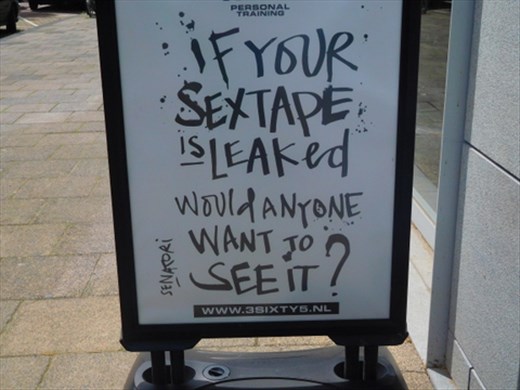 PERSONAL
TRAINING
IF YOUR
SEXTAPE
IS LEAKed
WOUld ANYONE
WANT TO
SEE IT?
SENATORI
WWW.3SIXTY5.NL